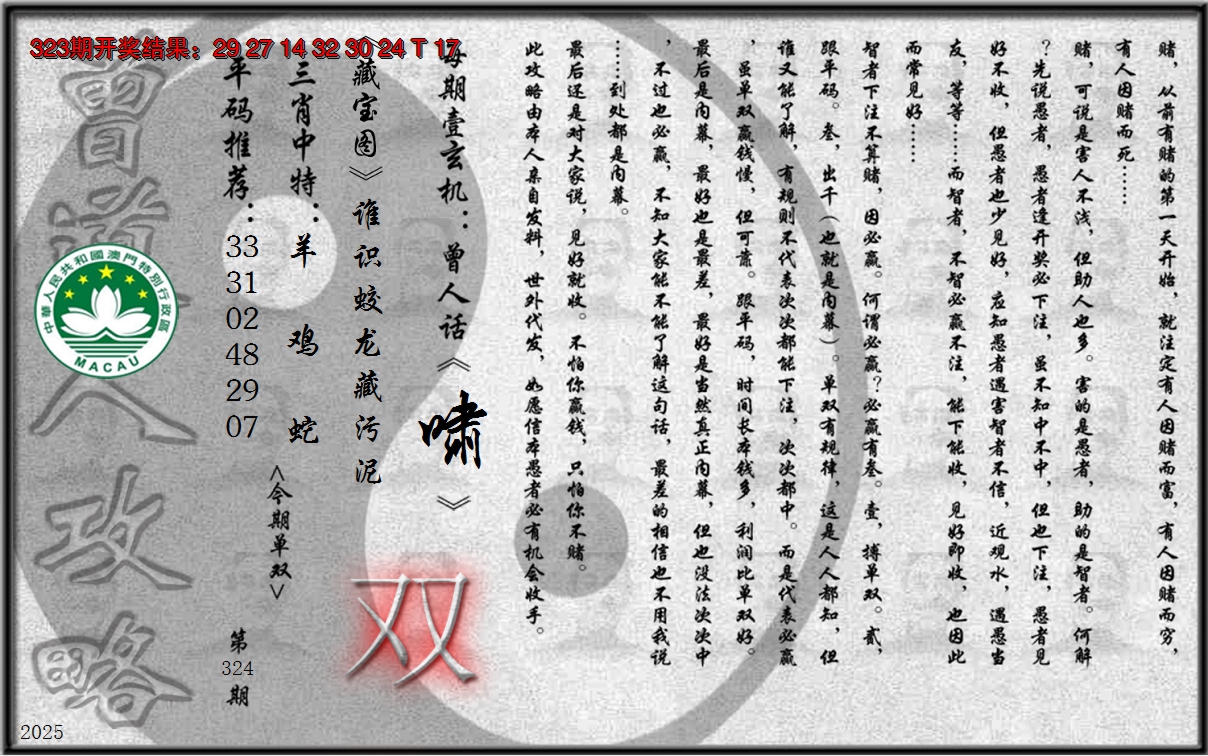 323期开奖结果：29 27 14 32 30 24 T 17
赌，从前有赌的第一天开始，就注定有人因赌而富，有人因赌而穷，
有人因赌而死……
赌，可说是害人不浅，但助人也多。害的是愚者，助的是智者。何解
？先说愚者，愚者逢开奖必下注，虽不知中不中，但也下注，愚者见
好不收，但愚者也少见好，应知愚者遇害智者不信，近观水，遇愚当
友，等等……而智者，不智必赢不注，能下能收，见好即收，也因此
而常见好……
智者下注不算赌，因必赢。何谓必赢？必赢有叁。壹，搏单双。贰，
跟平码。叁，出千（也就是内幕）。单双有规律，这是人人都知，但
谁又能了解，有规则不代表次次都能下注，次次都中。而是代表必赢
，虽单双赢钱慢，但可靠。跟平码，时间长本钱多，利润比单双好。
最后是内幕，最好也是最差，最好是当然真正内幕，但也没法次次中
，不过也必赢，不知大家能不能了解这句话，最差的相信也不用我说
……到处都是内幕。
最后还是对大家说，见好就收。不怕你赢钱，只怕你不赌。
此攻略由本人亲自发料，世外代发，如愿信本愚者必有机会收手。
每期壹玄机：曾人话《啸》
《藏宝图》谁识蛟龙藏污泥
双
三肖中特：羊 鸡 蛇
<今期单双>
平码推荐：33 31 02 48 29 07
第324期
曾道人攻略
中華人民共和國澳門特別行政區
MACAU
2025